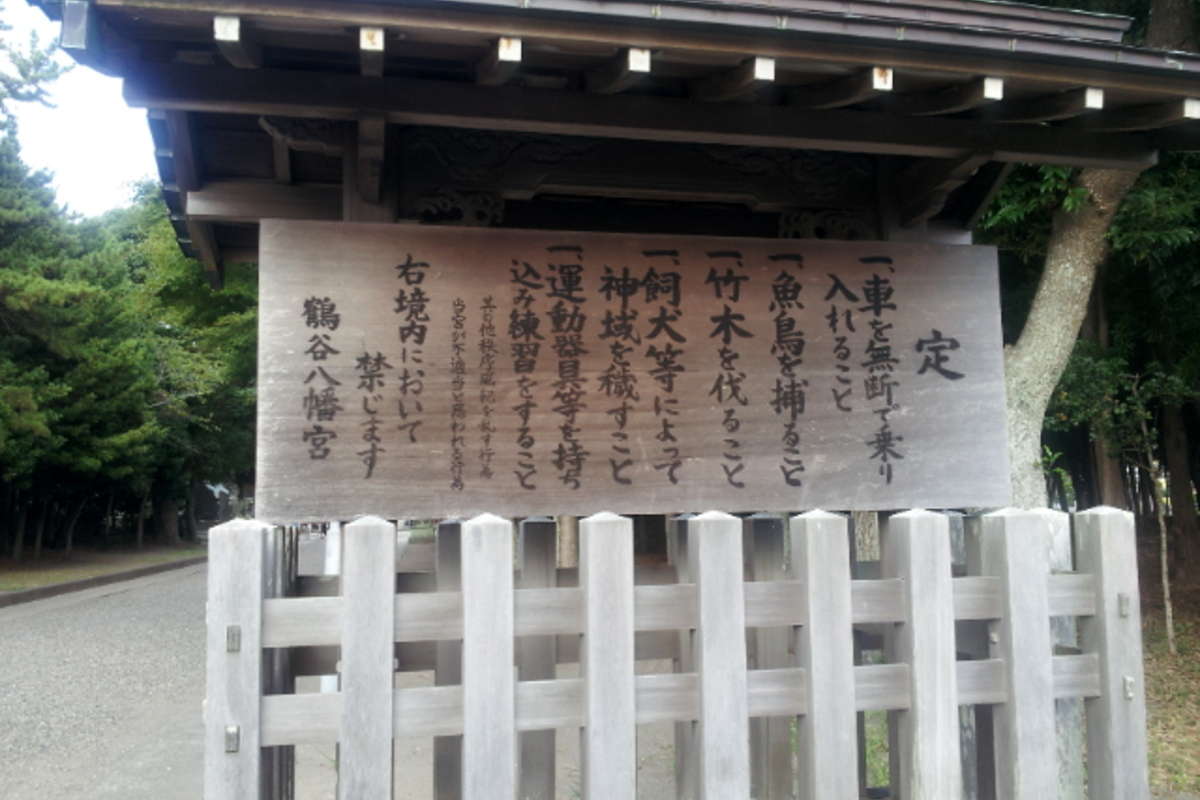 定
一、車を無断で乗り
入れること
一、魚鳥を捕ること
一、竹木を伐ること
一、飼犬等によって
神域を穢すこと
一、運動器具等を持ち
込み練習をすること
其の他秩序風紀を乱す行為
当宮が不適当と思われる行為
右境内において
禁じます
鶴谷八幡宮